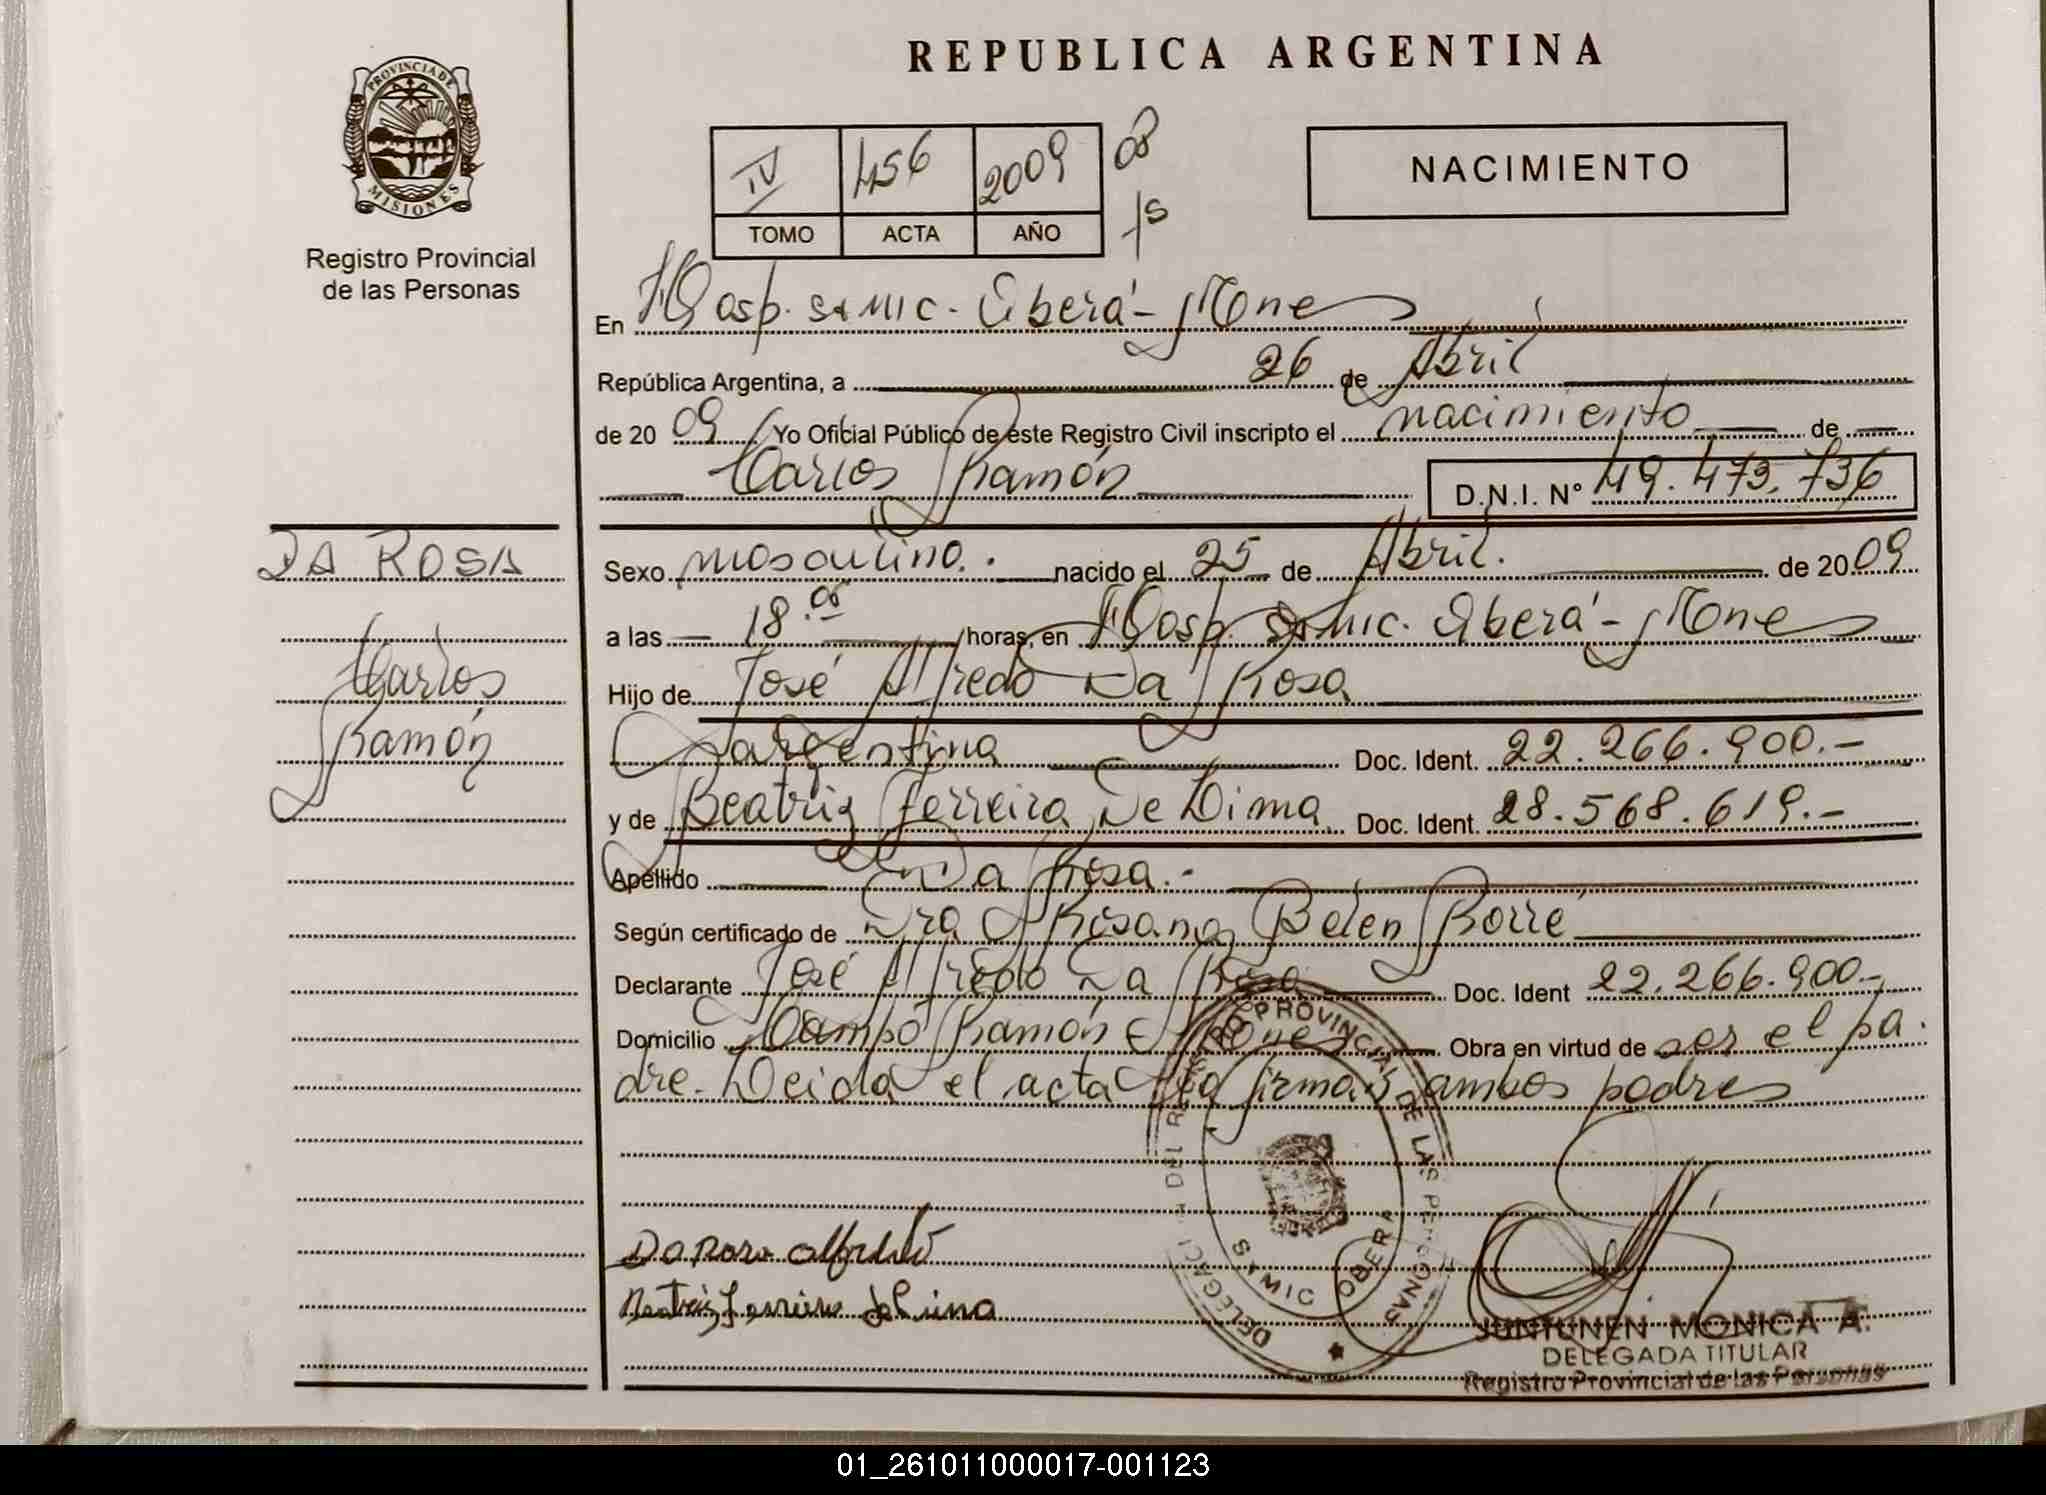 REPUBLICA ARGENTINA
PROVINCIA DE
MISIONES
Registro Provincial
de las Personas
IV 456 2009 08
TOMO ACTA AÑO
NACIMIENTO
En Hosp. SAMIC. Oberá - Mnes
República Argentina, a 26 de Abril
de 2009 Yo Oficial Público de este Registro Civil inscripto el nacimiento de
Carlos Ramón D.N.I. Nº 49.473.736
DA ROSA
Carlos
Ramón
Sexo masculino. nacido el 25 de Abril. de 2009
a las 18.05 horas, en Hosp. SAMIC. Oberá - Mnes
Hijo de José Alfredo Da Rosa
Argentina Doc. Ident. 22.266.900.-
y de Beatriz Ferreira De Lima Doc. Ident. 28.568.619.-
Apellido Da Rosa.-
Según certificado de Dra Rosana Belén Borré
Declarante José Alfredo Da Rosa Doc. Ident 22.266.900.-
Domicilio Campo Ramón Mnes Obra en virtud de ser el pa
dre. Leida el acta la firman ambos padres
DELEGACI DEL REGISTRO PROVINCIAL DE LAS PERSONAS
SAMIC OBERA
Da Rosa Alfredo
Beatriz Ferreira de Lima
JUNTUNEN MONICA A.
DELEGADA TITULAR
Registro Provincial de las Personas
01_261011000017-001123